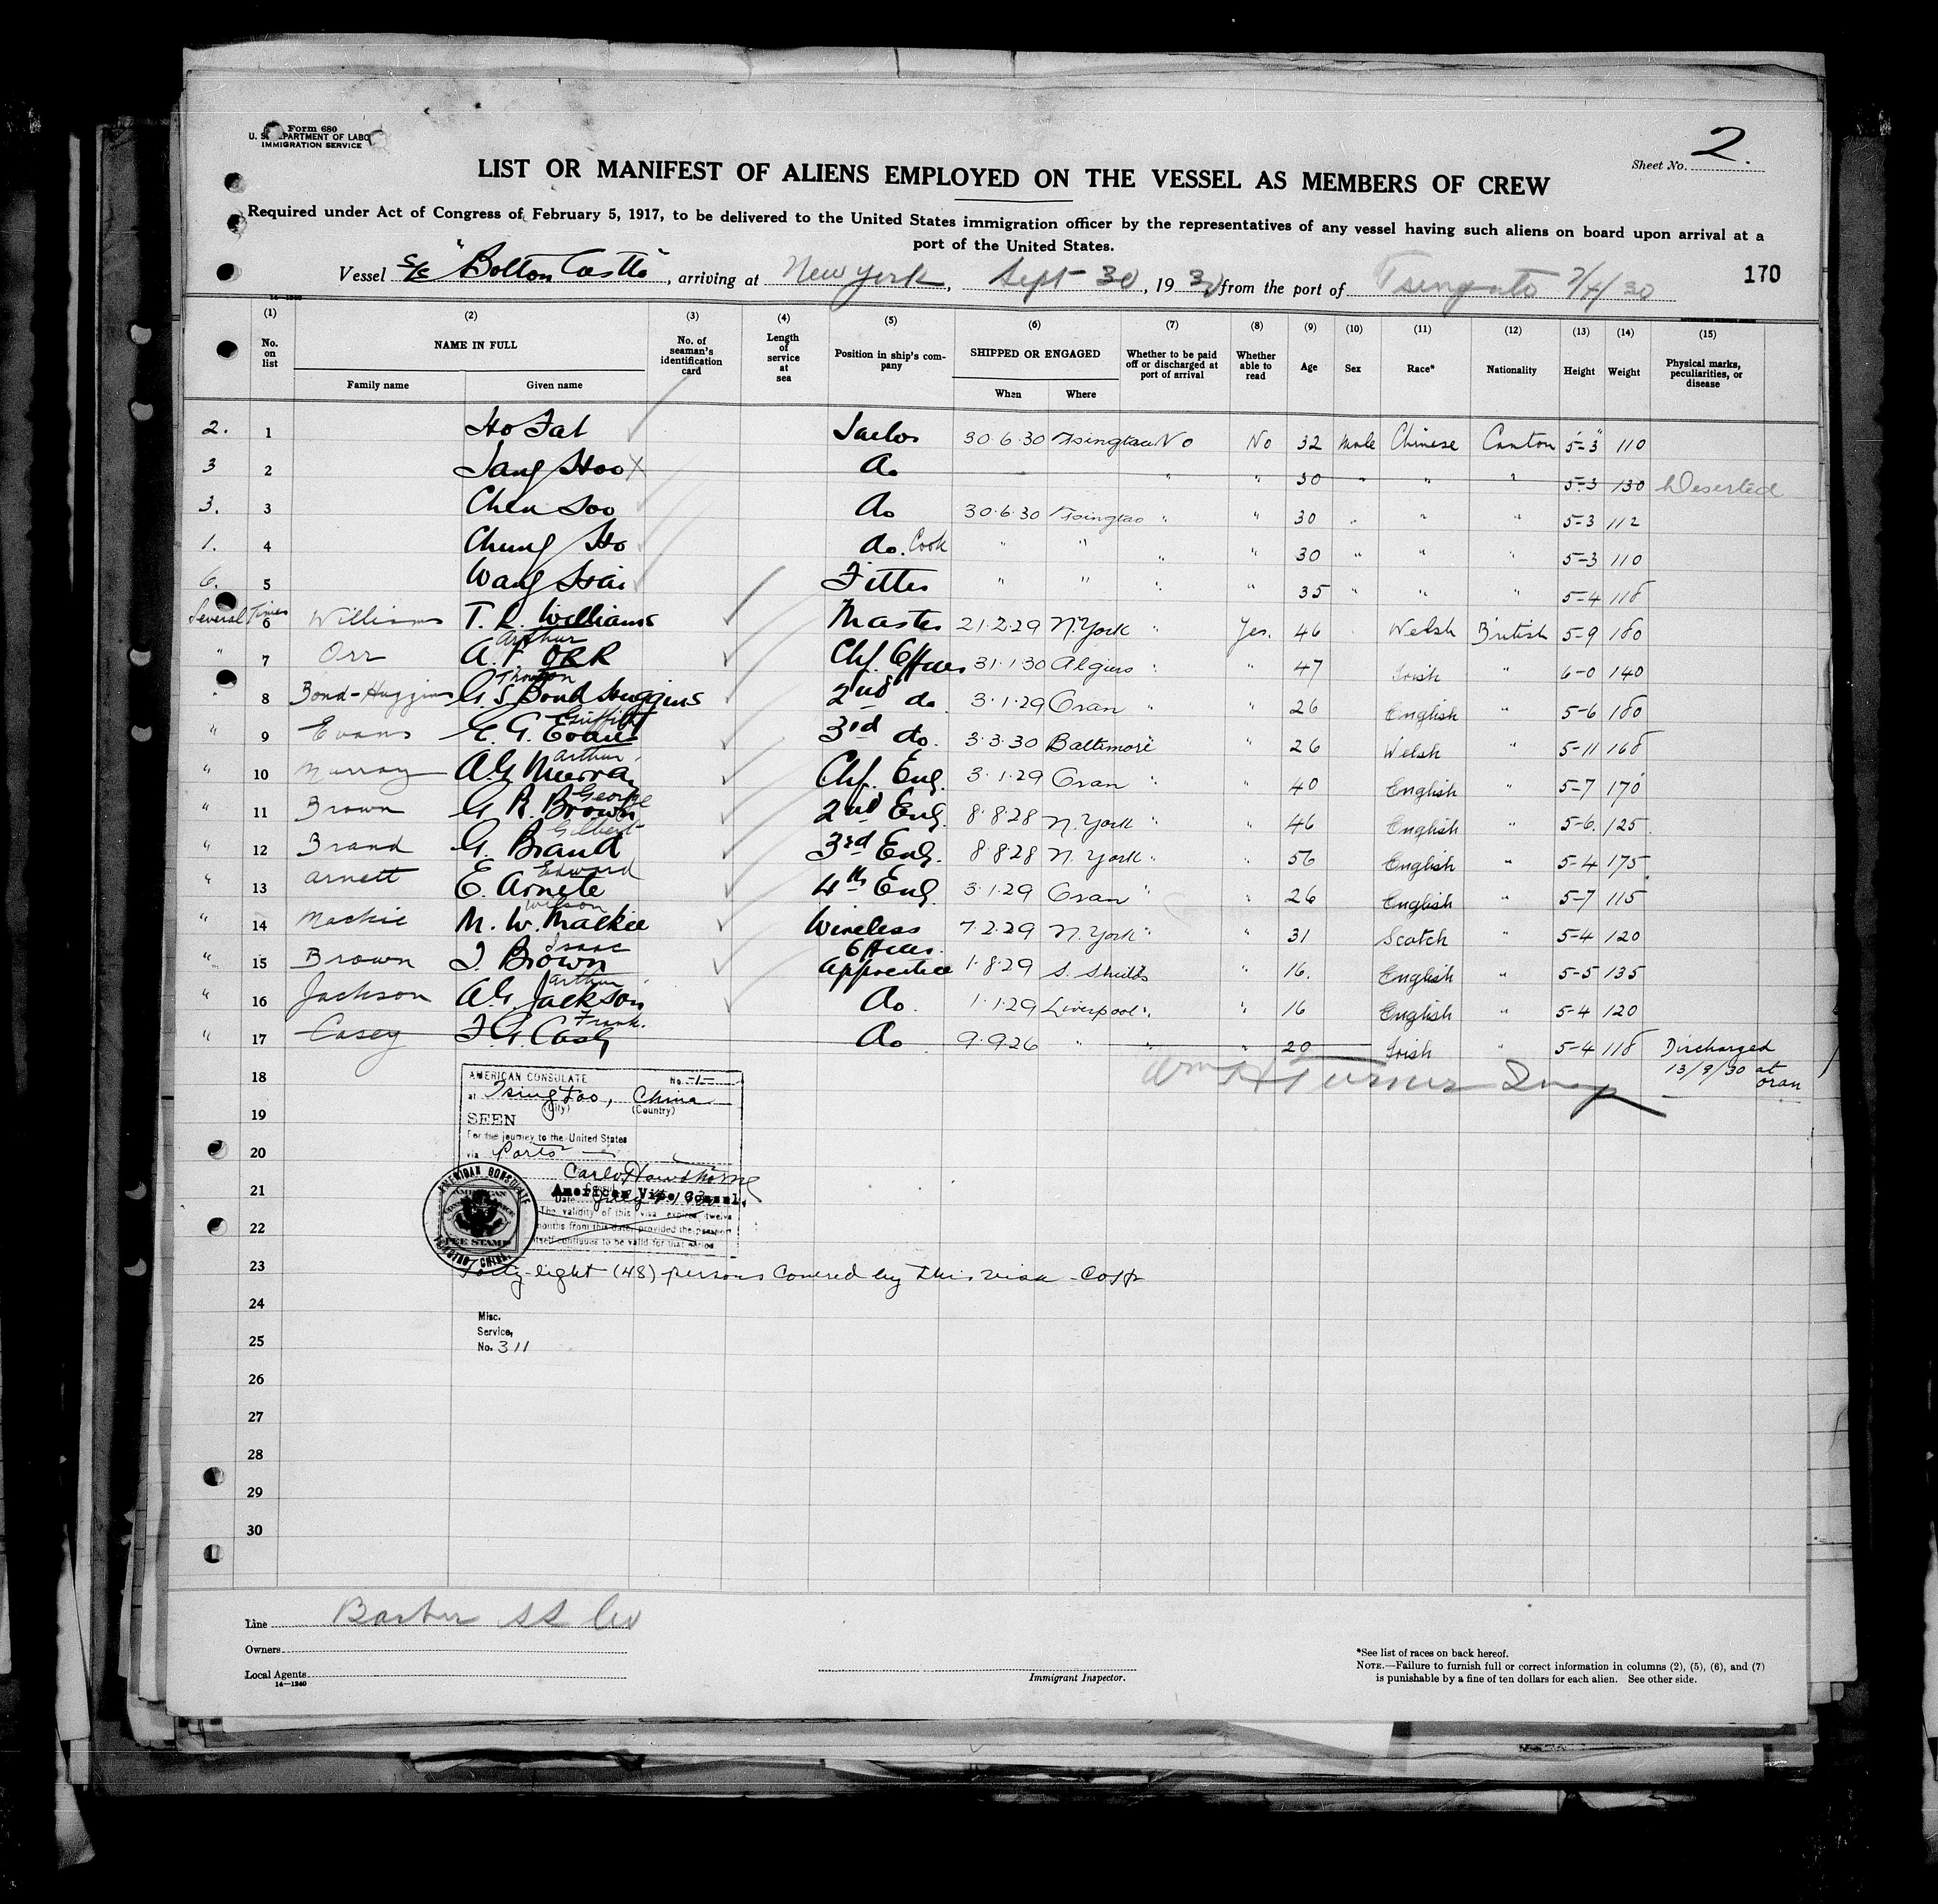 Form 680
U. S. DEPARTMENT OF LABOR
IMMIGRATION SERVICE
Sheet No. 2.
LIST OR MANIFEST OF ALIENS EMPLOYED ON THE VESSEL AS MEMBERS OF CREW
Required under Act of Congress of February 5, 1917, to be delivered to the United States immigration officer by the representatives of any vessel having such aliens on board upon arrival at a
port of the United States.
Vessel S/S "Bolton Castle", arriving at New York, Sept 30, 1930 from the port of Tsingtao 7/4/30
170
14-1240
(1) No. on list (2) NAME IN FULL Family name Given name (3) No. of seaman's identification card (4) Length of service at sea (5) Position in ship's company (6) SHIPPED OR ENGAGED When Where (7) Whether to be paid off or discharged at port of arrival (8) Whether able to read (9) Age (10) Sex (11) Race* (12) Nationality (13) Height (14) Weight (15) Physical marks, peculiarities, or disease
2. 1 Ho Fat Sailor 30.6.30 Tsingtau No No 32 Male Chinese Canton 5-3 110
3 2 Sang Hoo X do 30 " " " 5-3 130 Deserted
3. 3 Chen Soo do 30.6.30 Tsingtao " " 30 " " " 5-3 112
1. 4 Chung Ho do. Cook " " " " 30 " " " 5-3 110
6. 5 Wang Fitter " " " " 35 " " " 5-4 118
Several Times 6 Williams T. R. Williams Master 21.2.29 N.York " Yes. 46 Welsh British 5-9 180
" 7 Orr A. F. Orr Arthur Chf. Officer 31.1.30 Algiers " " 47 Irish " 6-0 140
" 8 Bond-Huggins G. S. Bond Huggins 2nd do 3.1.29 Oran " " 26 English " 5-6 180
" 9 Evans E. G. Evans Griffith 3rd do. 3.3.30 Baltimore " " 26 Welsh " 5-11 168
" 10 Murray A. G. Murray Arthur Chf. Eng. 3.1.29 Oran " " 40 English " 5-7 170
" 11 Brown G. R. Brown George 2nd Eng. 8.8.28 N. York " " 46 English " 5-6. 125.
" 12 Brand G. Brand Gilbert 3rd Eng. 8.8.28 N. York " " 56 English " 5-4 175
" 13 Arnett E. Arnete Edward 4th Eng. 3.1.29 Oran " " 26 English " 5-7 115
" 14 Mackie M. W. Mackie Wilson Wireless Officer. 7.2.29 N. York " " 31 Scotch " 5-4 120
" 15 Brown I. Brown Isaac Apprentice 1.8.29 S. Shields " 16. English " 5-5 135
" 16 Jackson A. G. Jackson Arthur do. 1.1.29 Liverpool " " 16 English " 5-4 120
" 17 Casey F. G. Casey Frank. do 9.9.26 " " 20 Irish " 5-4 118 Discharged
13/9/30 at
Oran
18
Turner Insp
AMERICAN CONSULATE No. -1-
at Tsingtao, China
(City) (Country)
19
SEEN
For the journey to the United States
20
via Ports
21
American Vice Consul.
Date July 4, 1930
The validity of this visa expires twelve
22
months from this date, provided the passport
itself continues to be valid for that period
AMERICAN CONSULATE
AMERICAN
FEE STAMP
TSINGTAO, CHINA.
23
Forty-eight (48) persons covered by this visa
24
Misc.
Service,
25
No. 311
26
27
28
29
30
Line Barber SS Co
Owners
Local Agents
14-1240
Immigrant Inspector.
*See list of races on back hereof.
NOTE.—Failure to furnish full or correct information in columns (2), (5), (6), and (7)
is punishable by a fine of ten dollars for each alien. See other side.